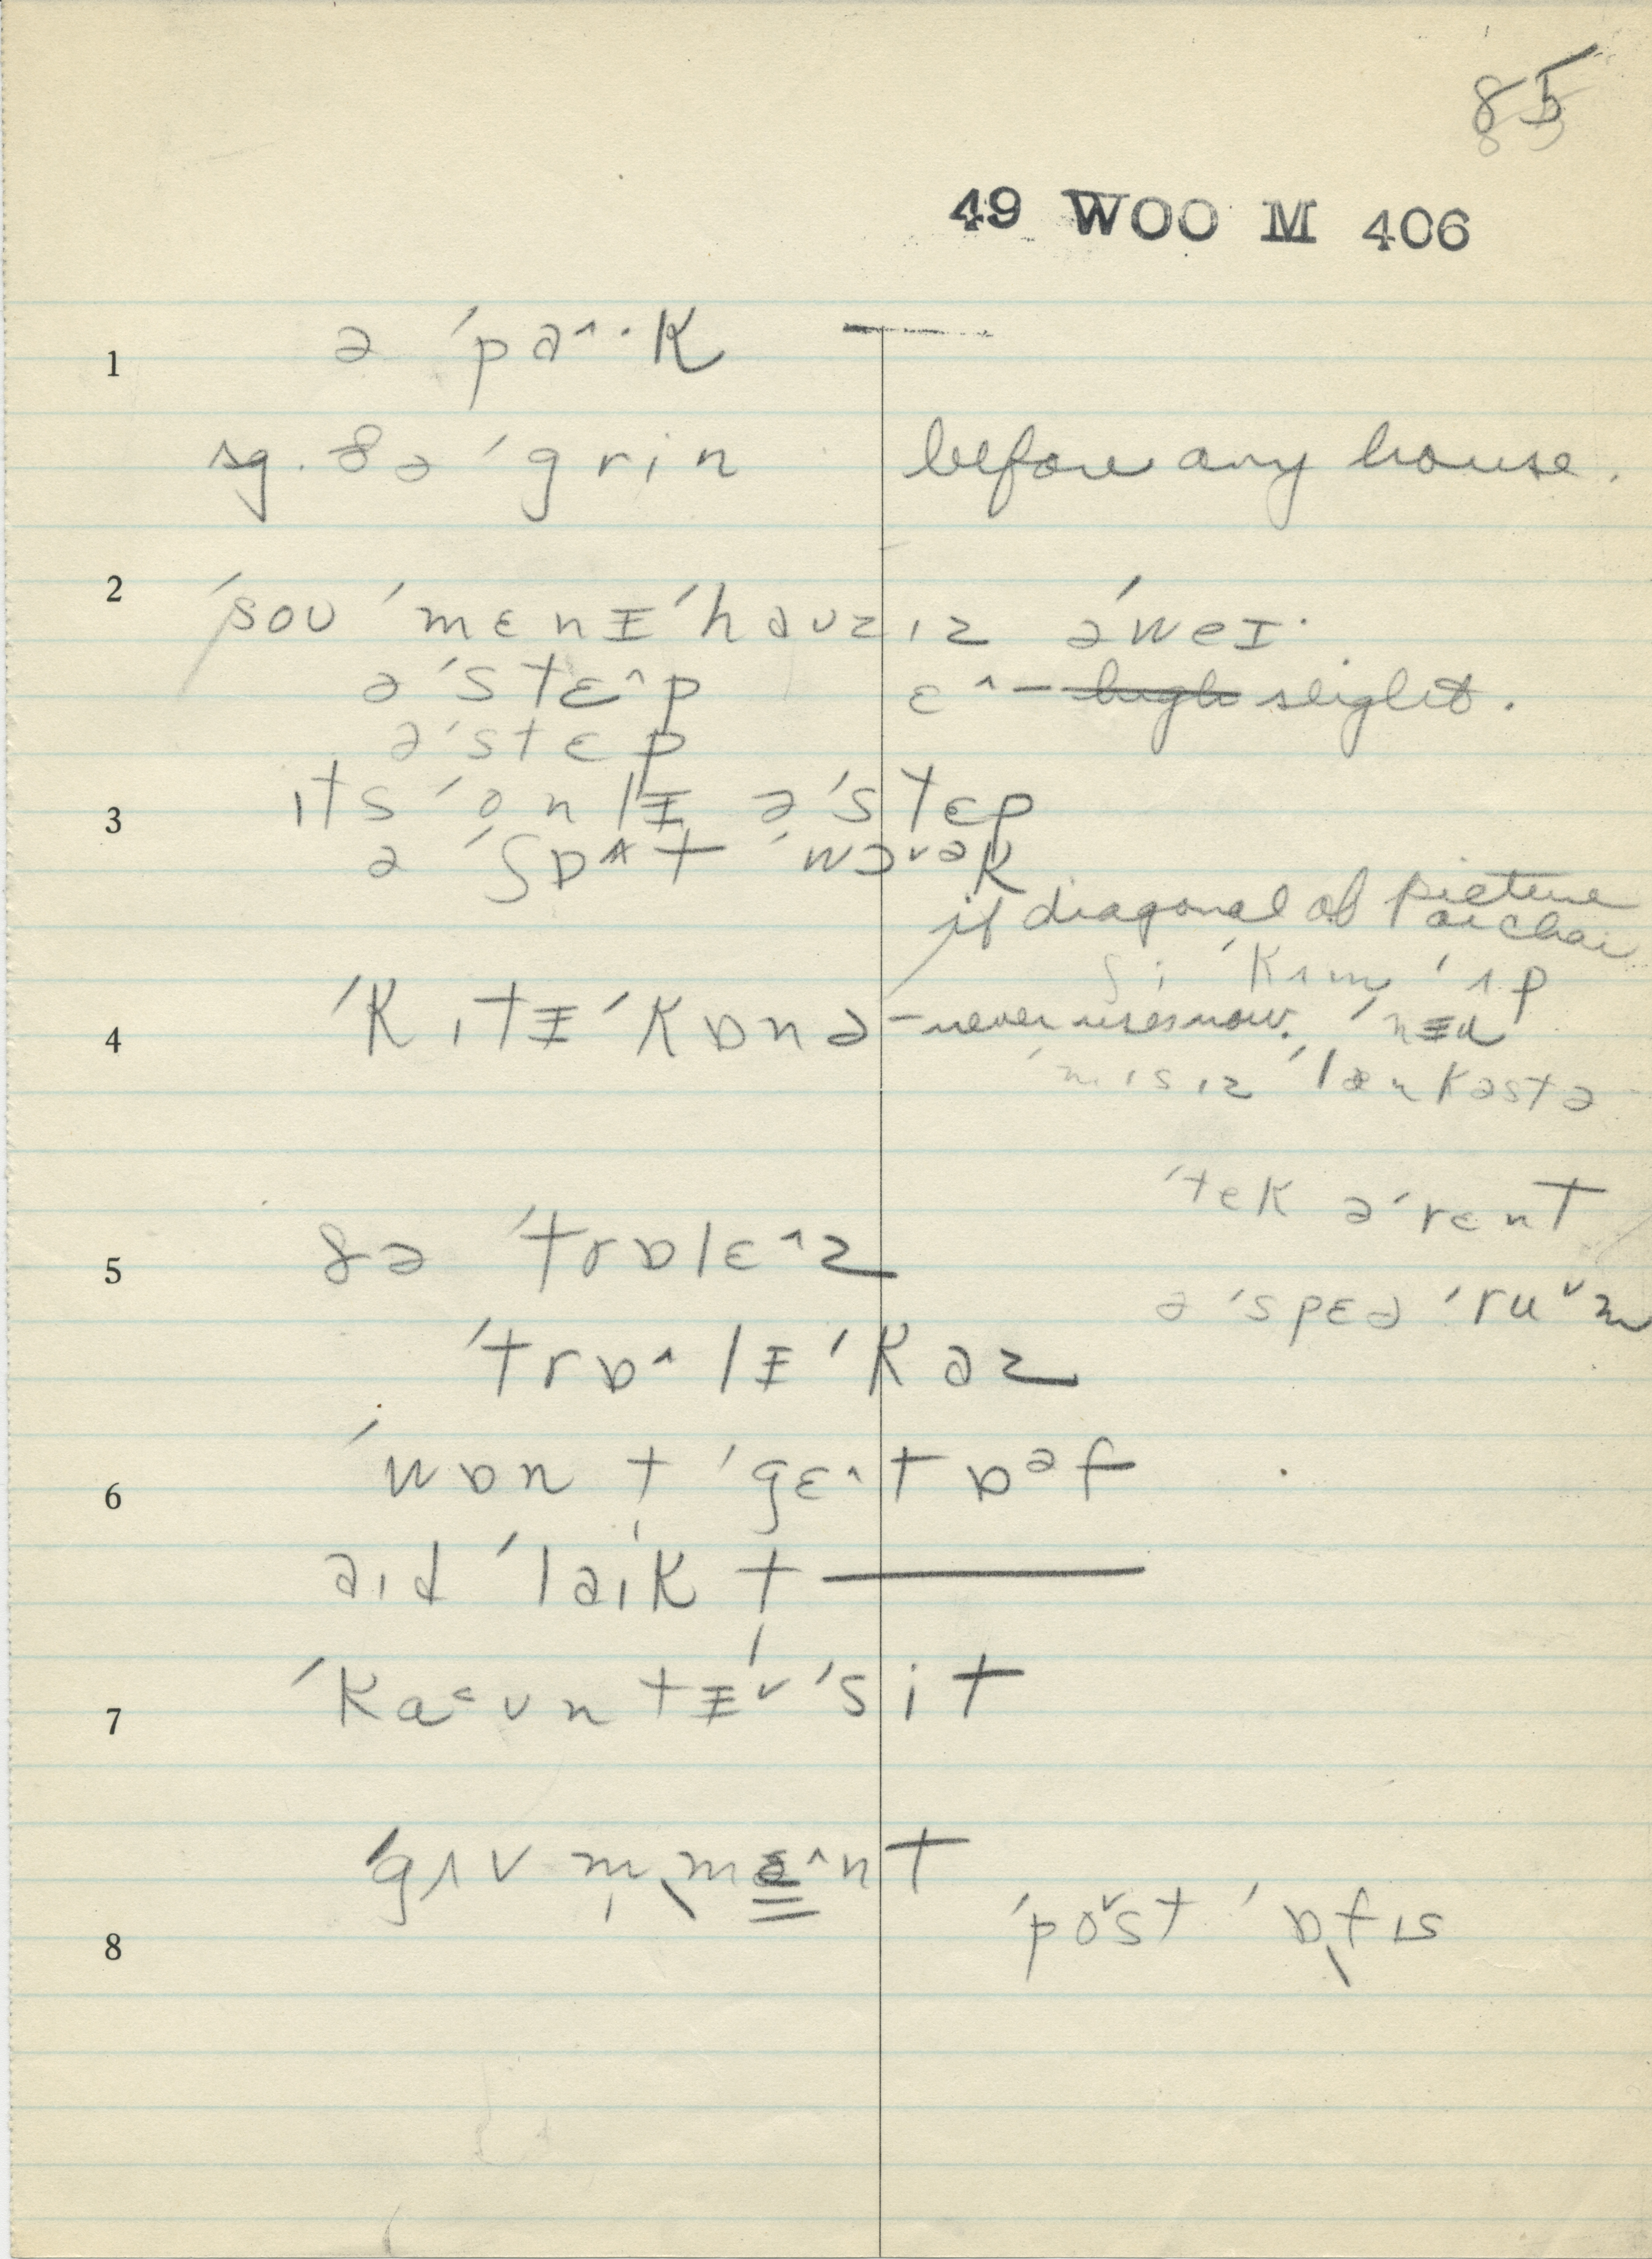 85
49 WOO M 406
1 ə ˈpa^·k
sg. ðə ˈgrin before any house.
2 ˈsoʊ ˈmɛnɪ ˈhaʊzɪz əˈweɪ·
əˈstɛ^p ɛ^ – high slight.
əˈstɛp
3 ɪts ˈonlɪ əˈstɛp
ə ˈʃɒ^t ˈwɔ˅ək
if diagonal of picture
or chair
ʃi ˈkʌm ˈʌp
4 ˈkɪtɪ ˈkɒnə – never uses now. ˈnɪə
ˈmɪsɪz ˈlænkəstə
ˈtek əˈrɛnt
5 ðə ˈtrɒlɛ^z
ə ˈspɛə ˈru˅m
ˈtrɒ^lɪ ˈkaz
6 ˈwɒn t ˈgɛ^t ɒəf
aɪd ˈlaɪk t ———
7 ˈka<ʊntɪ˅ ˈsit
ˈgʌvm̩mə^nt
8 ˈpo˅st ˈɒfɪs